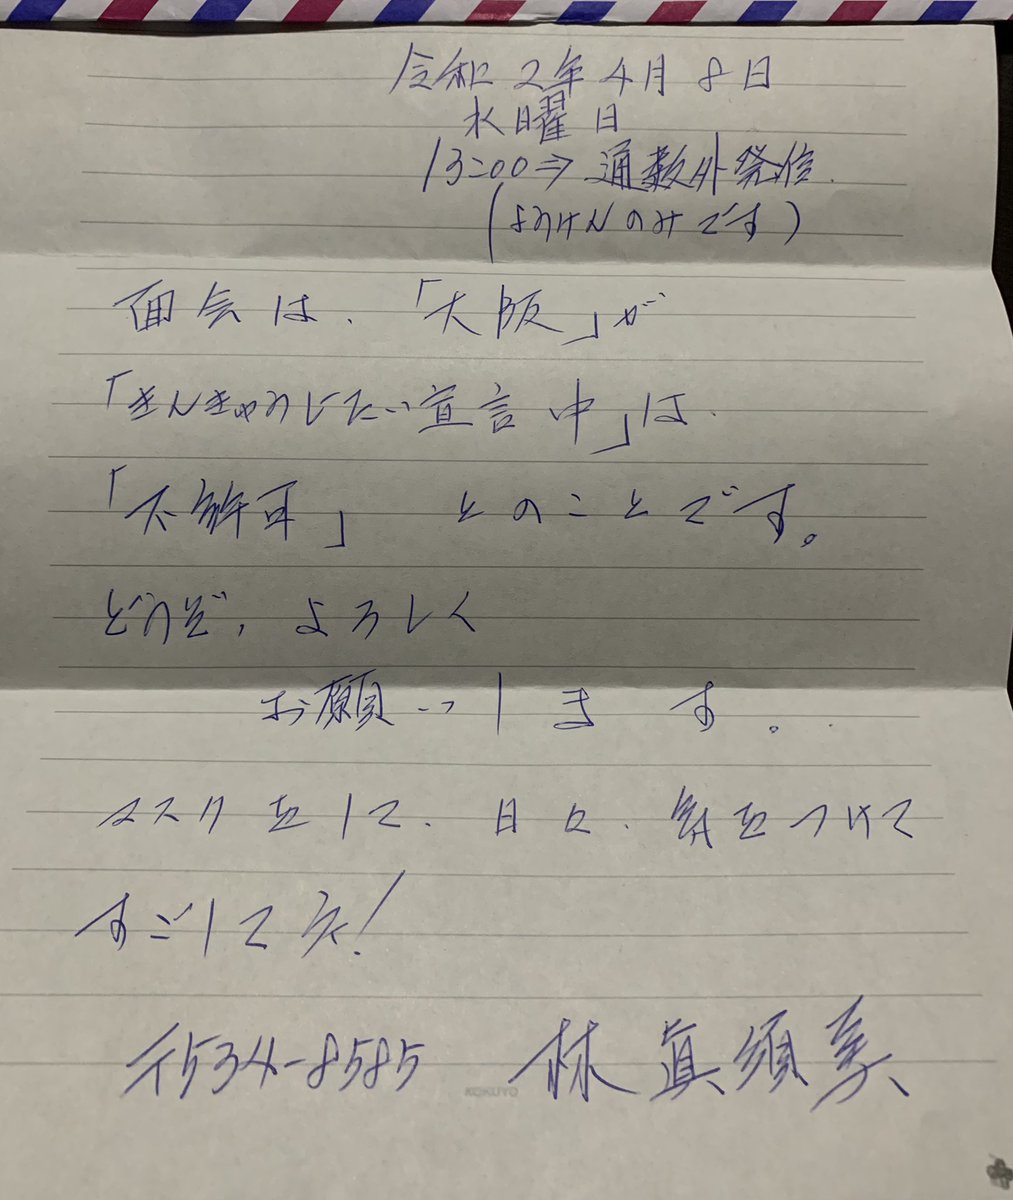 令和2年4月8日
水曜日
13:00⇒通数外発信.
(ようけんのみです)
面会は、「大阪」が
「きんきゅうじたい宣言中」は、
「不許可」とのことです。
どうぞ、よろしく
お願いします。
マスクをして、日々、気をつけて
すごしてネ!
〒534-8585 林眞須美